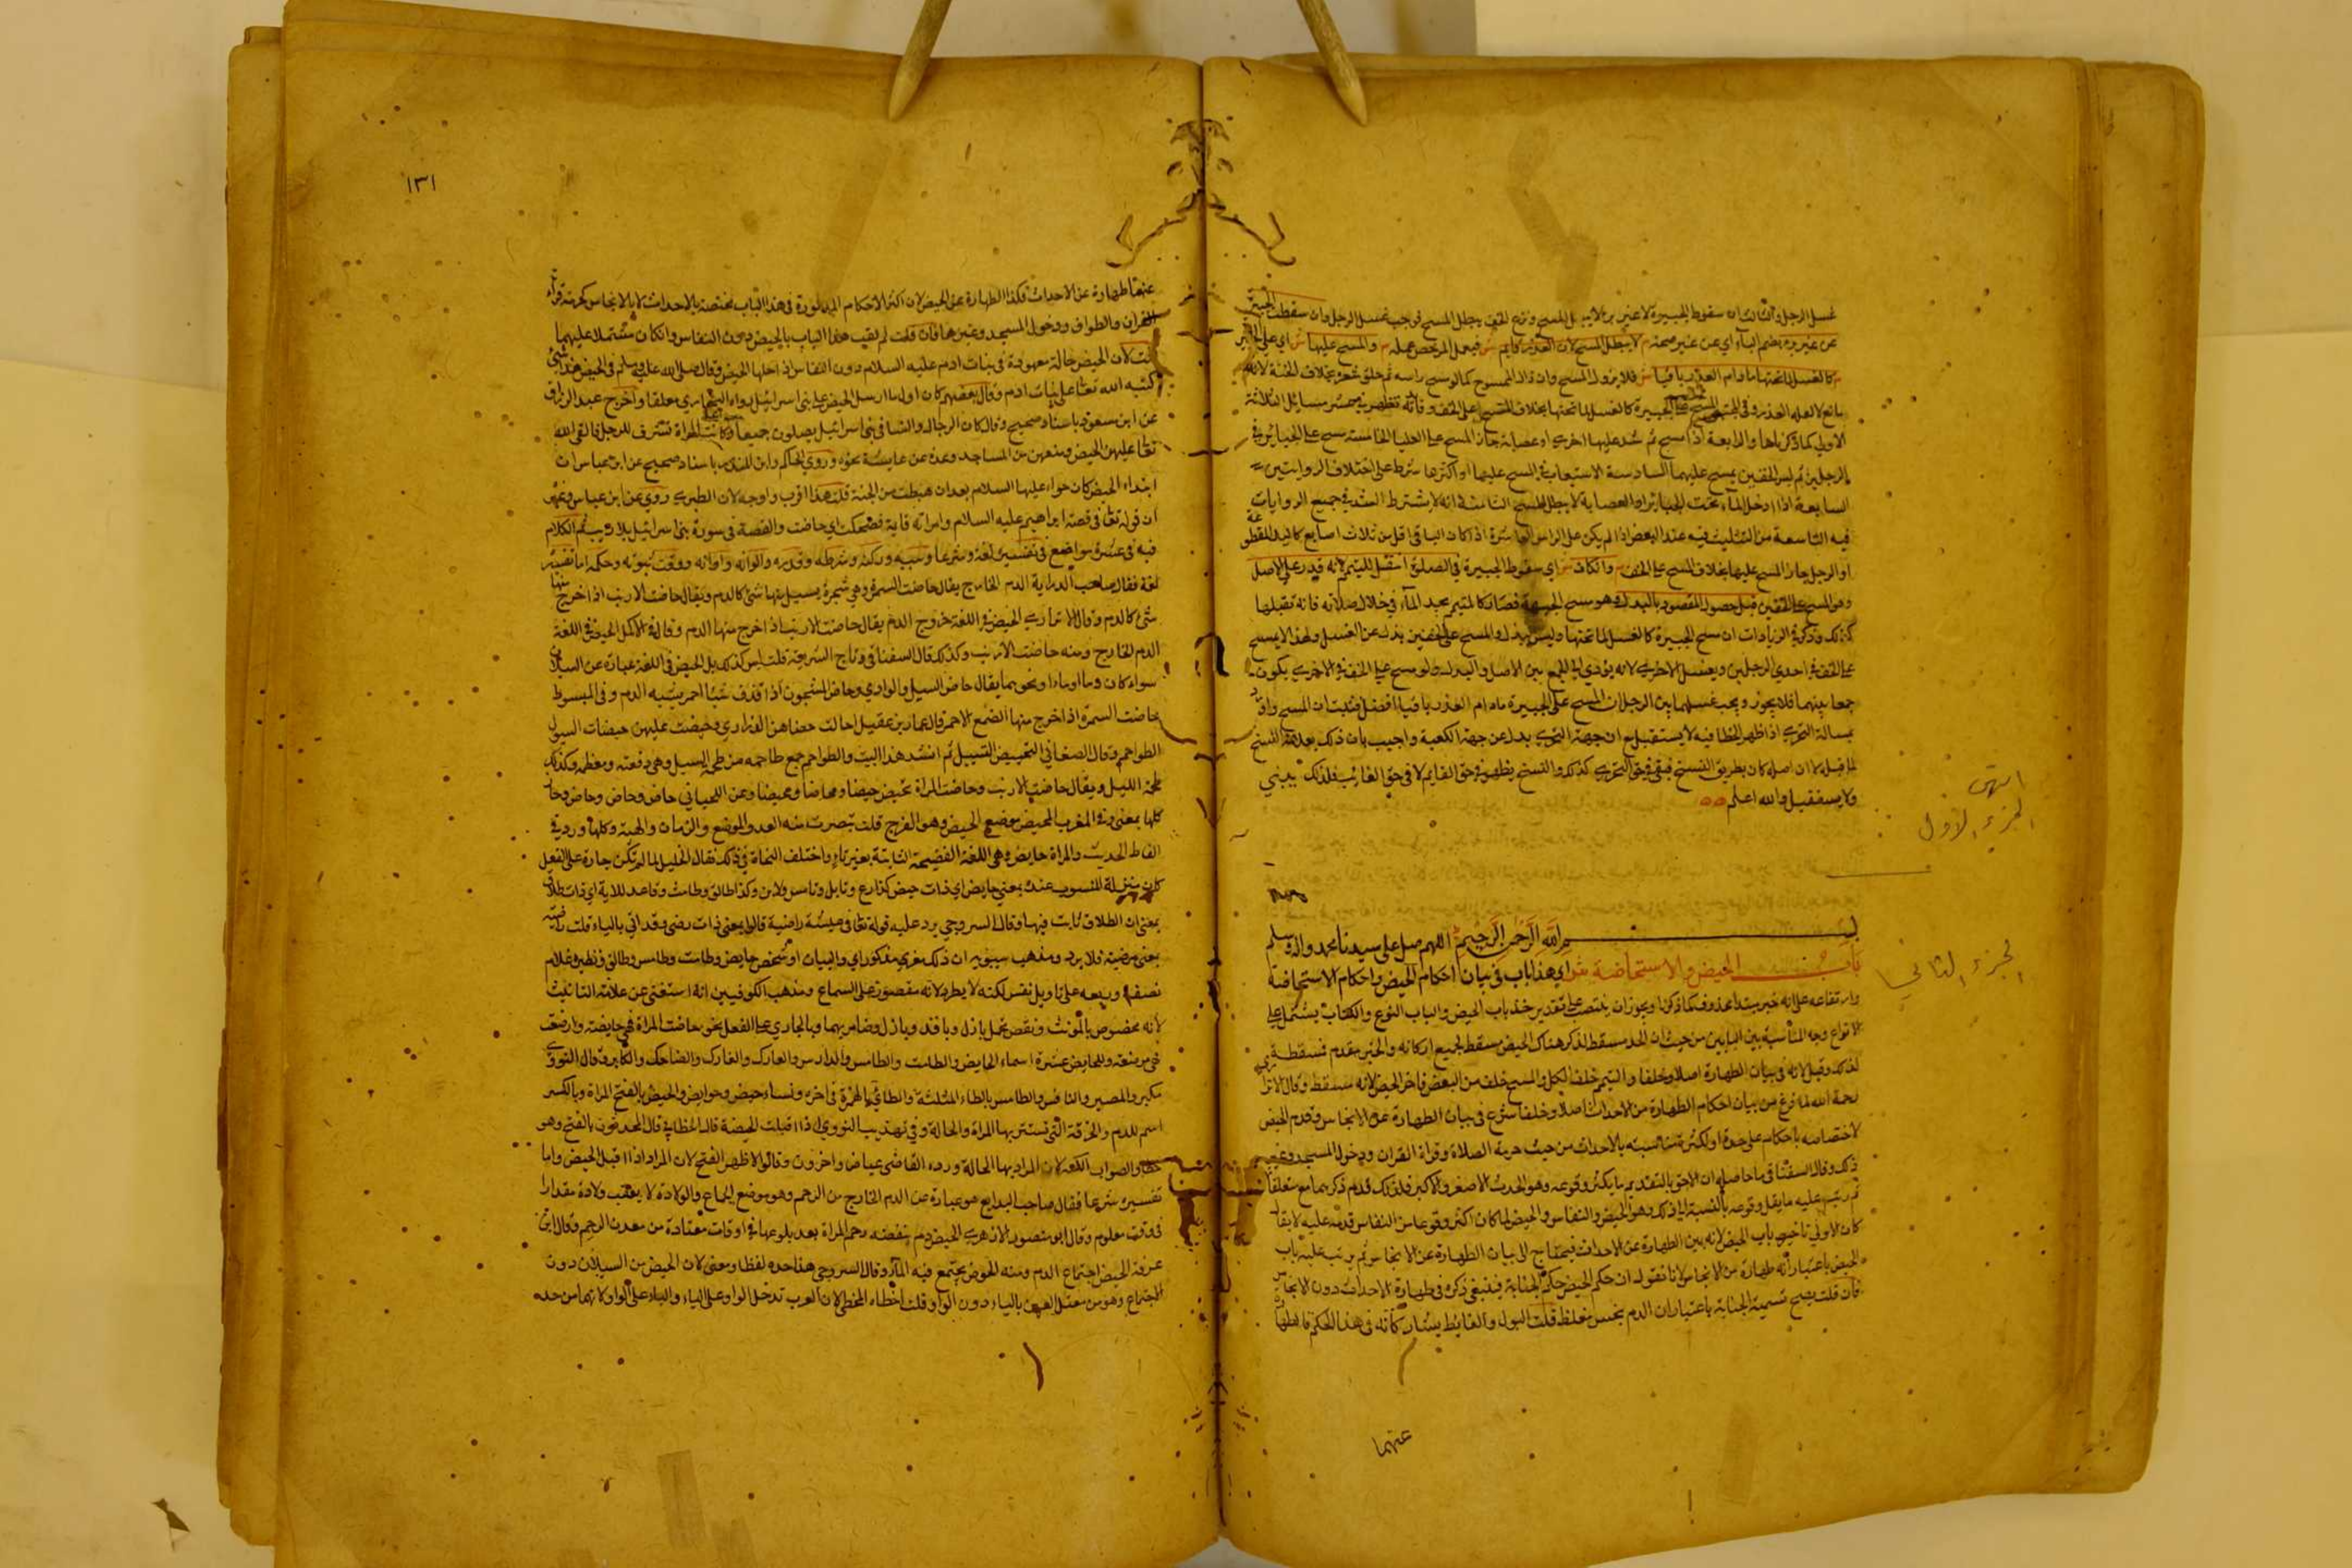 غسل الرجل والثالث ان سقوط الجبيرة لا عن برء لا يبطل المسح ونزع الخف يبطل المسح فوجب غسل الرجل وان سقطت الجبيرة
عن برء بضم الباء اي عن غير صحة م لا يبطل المسح لان العذر قايم ش فيحمل المرخص عمله م والمسح عليها ش اي على الجبائر
م كالغسل لما تحتها ما دام العذر باقيا ش فلا يزول المسح وان زال الممسوح كما لو مسح راسه ثم حلق شعره بخلاف الخف لانه
مانع لا لعلة العذر وفي المسح على الجبيرة كالغسل لما تحتها بخلاف المسح على الخف وفائدته تظهر في عشر مسائل الثلاثة
الاولى كما ذكرناها والرابعة اذا مسح ثم شد عليها اخرى او عصابة جاز المسح على العليا الخامسة مسح على الجبائر في
الرجلين ثم لبس الخفين يمسح عليهما السادسة الاستيعاب في المسح عليها او اكثرها شرط على اختلاف الروايتين
السابعة اذا دخل الماء تحت الجبائر او العصابة لا يبطل المسح الثامنة انه لا يشترط النية في جميع الروايات
فيه التاسعة من التثليث فيه عند البعض اذا لم يكن على الراس العاشرة اذا كان الباقي اقل من ثلاث اصابع كاليد المقطوعة
او الرجل جاز المسح عليها بخلاف المسح على الخف م وان كان ش اي سقوط الجبيرة في الصلوة استقبل لانه قدر على الاصل
قبل حصول المقصود بالبدل وهو مسح الجبيرة فصار كالمتيمم يجد الماء في خلال صلاته فانه يستقبلها
كذلك وذكر في الزيادات ان مسح الجبيرة كالغسل لما تحتها وليس ببدل والمسح على الخفين بدل عن الغسل ولهذا لا يمسح
على الخف في احدي الرجلين ويغسل الاخرى لانه يؤدي الى الجمع بين الاصل والبدل ولو مسح على الخف في الاخرى يكون
جمعا بينهما فلا يجوز ويجب غسلهما بين الرجل لان المسح على الجبيرة ما دام العذر باقيا افضل فثبت ان المسح
مسالة التحري اذا ظهر الخطا فيه لا يستقبل مع ان جهة التحري بدل عن جهة الكعبة واجيب بان ذلك بمنزلة النسخ
لما قبله لان اصله كان بطريق النسخ فبقي في حق التحري كذلك والنسخ يظهر في حق القايم لا في حق الفائت فلذلك يبني
ولا يستقبل والله اعلم
انتهى
الجزء الاول
بسم الله الرحمن الرحيم اللهم صل على سيدنا محمد واله وسلم
باب الحيض والاستحاضة ش اي هذا باب في بيان احكام الحيض واحكام الاستحاضة
الجزء الثاني
وارتفاعه على انه خبر مبتدا محذوف كما ذكرنا ويجوز ان ينتصب على تقدير خذ باب الحيض والباب النوع والكتاب يشتمل على
الانواع وجه المناسبة بين البابين من حيث ان مسقط لذكر هناك الحيض مسقط لجميع اركانه
لذلك وقيل لانه في بيان الطهارة اصلا وخلفا والتيمم خلف الكل والمسح خلف من البعض فاخر الحيض لانه مسقط وقال الاترازي
رحمه الله لما فرغ من بيان احكام الطهارة من الاحداث اصلا وخلفا شرع في بيان الطهارة عن الانجاس وقدم الحيض
لاختصاصه باحكام على حدة او لكثرة مناسبته بالاحداث من حيث حرمة الصلاة وقراة القران ودخول المسجد وغير
ذلك وقال السغناقي ما حاصله ان الاحق بالتقديم ما يكثر وقوعه وهو الحدث الاصغر والاكبر فلذلك قدم ذكرهما مع متعلقاتهما
ثم رتب عليه ما يقل وقوعه بالنسبة الى ذلك وهو الحيض والنفاس والحيض لما كان اكثر وقوعا من النفاس قدمه عليه لا يقال
كان الاولى تاخير باب الحيض لانه بين الطهارة عن الاحداث فيحتاج الى بيان الطهارة عن الانجاس ثم يرتب عليه باب
الحيض باعتبار انه طهارة من الانجاس لانا نقول ان حكم الحيض حكم الجنابة فينبغي ذكره في طهارة الاحداث دون الانجاس
فان قلت يصح تسمية الجنابة باعتبار ان الدم نجس مغلظ قلت البول والغايط يشاركانه في هذا الحكم
عنهما
١٣١
عنهما طهارة عن الاحداث فكذا الطهارة عن الحيض لان اكثر الاحكام المذكورة في هذا الباب مختصة بالاحداث لا بالانجاس كحرمة قراة
القران والطواف ودخول المسجد وغيرها فان قلت لم لقب هذا الباب بالحيض دون النفاس وان كان مشتملا عليهما
قلت لان الحيض حالة معهودة في بنات ادم عليه السلام دون النفاس اذ اصلها الحيض وقال صلى الله عليه وسلم في الحيض هذا شئ
كتبه الله تعالى على بنات ادم وقال بعضهم كان اول ما ارسل الحيض على بني اسرائيل رواه البخاري معلقا واخرج عبد الرزاق
عن ابن مسعود باسناد صحيح وقال كان الرجال والنسا في بني اسرائيل يصلون جميعا وكانت المراة تتشرف للرجل فالقى الله
تعالى عليهن الحيض ومنعهن من المساجد وعنده عن عايشة نحوه وروى الحاكم وابن المنذر باسناد صحيح عن ابن عباس ان
ابتداء الحيض كان حواء عليها السلام بعد ان هبطت من الجنة قلت هذا اقرب واوجه لان الطبري روي عن ابن عباس وغيره
ان قوله تعالى في قصة ابراهيم عليه السلام وامراته قايمة فضحكت اي حاضت والقصة في سورة بني اسرائيل بلا ريب ثم الكلام
فيه في عشرة مواضع في تفسيره لغة وشرعا وسببه وركنه وشرطه وقدره والوانه واوانه ووقت ثبوته وحكمه اما تفسيره
لغة فقال صاحب الدراية الدم الخارج يقال حاضت السمرة وهي شجرة يسيل منها شئ كالدم ويقال حاضت الارنب اذا خرج منها
شئ كالدم وقال الاترازي الحيض في اللغة خروج الدم يقال حاضت الارنب اذا خرج منها الدم وقال في الاكمل الحيض في اللغة
الدم الخارج ومنه حاضت الارنب وكذلك قال السغناقي وتاج الشريعة قلت ليس كذلك بل الحيض في اللغة عبارة عن السيلان
سواء كان دما او ماء او نحوهما يقال حاض السيل والوادي وحاض الشجر اذا قذف شيئا احمر يشبه الدم وفي المبسوط
حاضت السمرة اذا خرج منها الصمغ الاحمر قال عمارة بن عقيل اجالت حصاهن الذواري وحيضت عليهن حيضات السيول
الطواحم وقال الصغاني التحييض التسييل ثم انشد هذا البيت والطواحم جمع طاحمة من طحمة السيل وهي دفعته ومعظمه وكذلك
طحمة الليل ويقال حاضت الارنب وحاضت المراة تحيض حيضا ومحاضا ومحيضا وعن اللحياني حاض وحاص وحاد
كلها بمعنى وفي المغرب المحيض موضع الحيض وهو الفرج
الفاظ الحديث والمراة حايض وهي اللغة الفصيحة الثابتة بغير تاء واختلف النحاة في ذلك فقال الخليل لما لم تكن جارية على الفعل
كان بمنزلة المنسوب عنده بمعنى حايض اي ذات حيض كدارع ونابل وتامر ولابن وكذا طالق وطامث وقاعد للاية اي ذات طلاق
بمعنى ان الطلاق ثابت فيها وقال السروجي يرد عليه قوله تعالى في عيشة راضية قالوا بمعنى ذات رضى وقد اتى بالتاء قلت راضية
بمعنى مرضية فلا يرد ومذهب سيبويه ان ذلك صفة مذكر اي انسان او شخص حايض وطامث وطامس وطالق ونظيره غلام
نصفه وربعة على تاويل نفس لكنه لا يطرد لانه مقصور على السماع ومذهب الكوفيين انه استغنى عن علامة التانيث
لانه مخصوص بالمونث ونقض بجمل بازل وناقة بازل وضامر بهما وبالجاري على الفعل نحو حاضت المراة فهي حايضة وارضعت
فهي مرضعة وللحايض عشرة اسماء الحايض والطامث والطامس والدارس والعارك والفارك والضاحك والكابر وقال النووي
مكبر والمعصر والنافس والطامس بالطاء المثلثة والطافئ بالهمزة في اخره ونساء حيض وحوايض والحيضة بالفتح المرة وبالكسر
اسم للدم والخرقة التي تستثفر بها المراة والحالة وفي تهذيب النووي اذا اقبلت الحيضة قال الخطابي قال المحدثون بالفتح وهو
خطا والصواب الكسر لان المراد بها الحالة ورده القاضي عياض واخرون وقالوا الاظهر الفتح لان المراد اذا اقبل الحيض واما
تفسيره شرعا فقال صاحب البدايع هو عبارة عن الدم الخارج من الرحم وهو موضع الجماع والولادة لا يعقب ولادة مقدارا
في وقت معلوم وقال ابو منصور الازهري الحيض دم ينفضه رحم المراة بعد بلوغها في اوقات معتادة من معدن الرحم وقال ابن
عرفة الحيض اجتماع الدم ومنه الحوض يجتمع فيه الماء وقال السروجي هذا احد لفظا ومعنى لان الحيض من السيلان دون
الاجتماع وهو من معتل العين بالياء دون الواو قلت اخطاء المخطئ لان العرب تدخل الواو على الياء والياء على الواو لانهما من حد